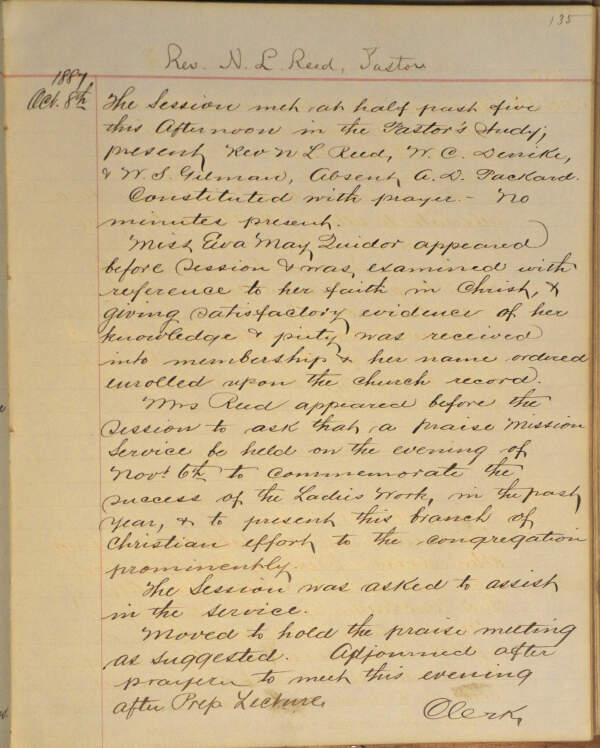 135
Rev. N. L. Reed, Pastor
1887
Oct. 8th
The Session met at half past five
this Afternoon in the Pastor's Study;
present Rev N L. Reed, W. C. Denike,
& W. S. Gilman, Absent A. D. Packard.
Constituted with prayer. - No
minutes present.
Miss Eva May Quidor appeared
before Session & was, examined with
reference to her faith in Christ, &
giving satisfactory evidence of her
knowledge & piety was received
into membership & her name ordered
enrolled upon the church record.
Mrs Reed appeared before the
Session to ask that a praise Mission
Service be held on the evening of
Novt 6th to commemorate the
success of the Ladies Work, in the past
year, & to present this branch of
Christian effort to the congregation
prominently.
The Session was asked to assist
in the service.
Moved to hold the praise meeting
as suggested. Adjourned after
prayer to meet this evening
after Prep. Lecture.
Clerk.